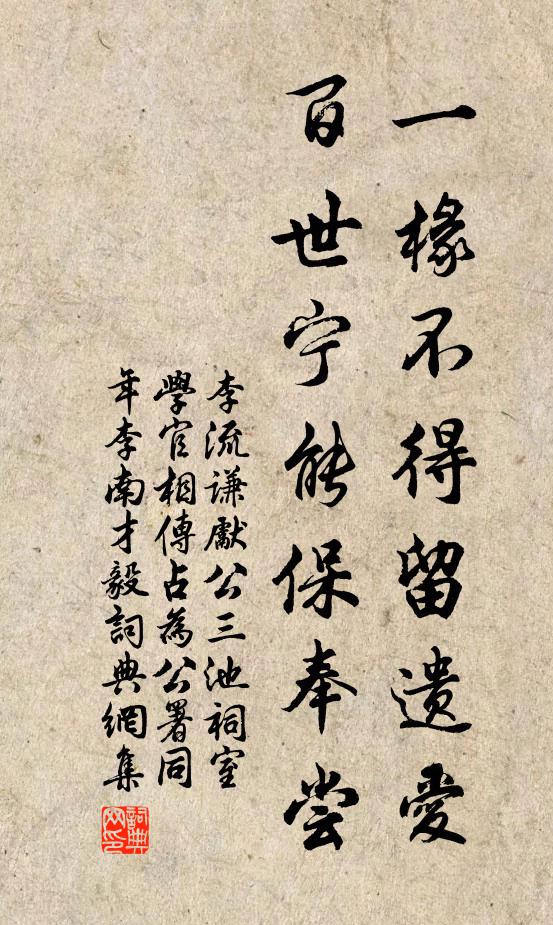 一椽不得留遗爱
百世宁能保奉尝
李流谦獻公三池祠室
學官相傳占為公署同
年李南才毅詞典網集
詞典网印